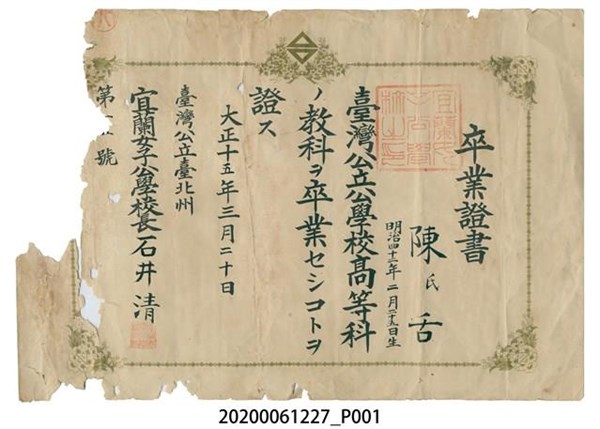 卒業證書
陳氏舌
明治四十二年二月二十五日生
臺灣公立公學校高等科
ノ教科ヲ卒業セシコトヲ
證ス
大正十五年三月二十日
臺灣公立臺北州
宜蘭女子公學校長石井清
第 號
20200061227_P001